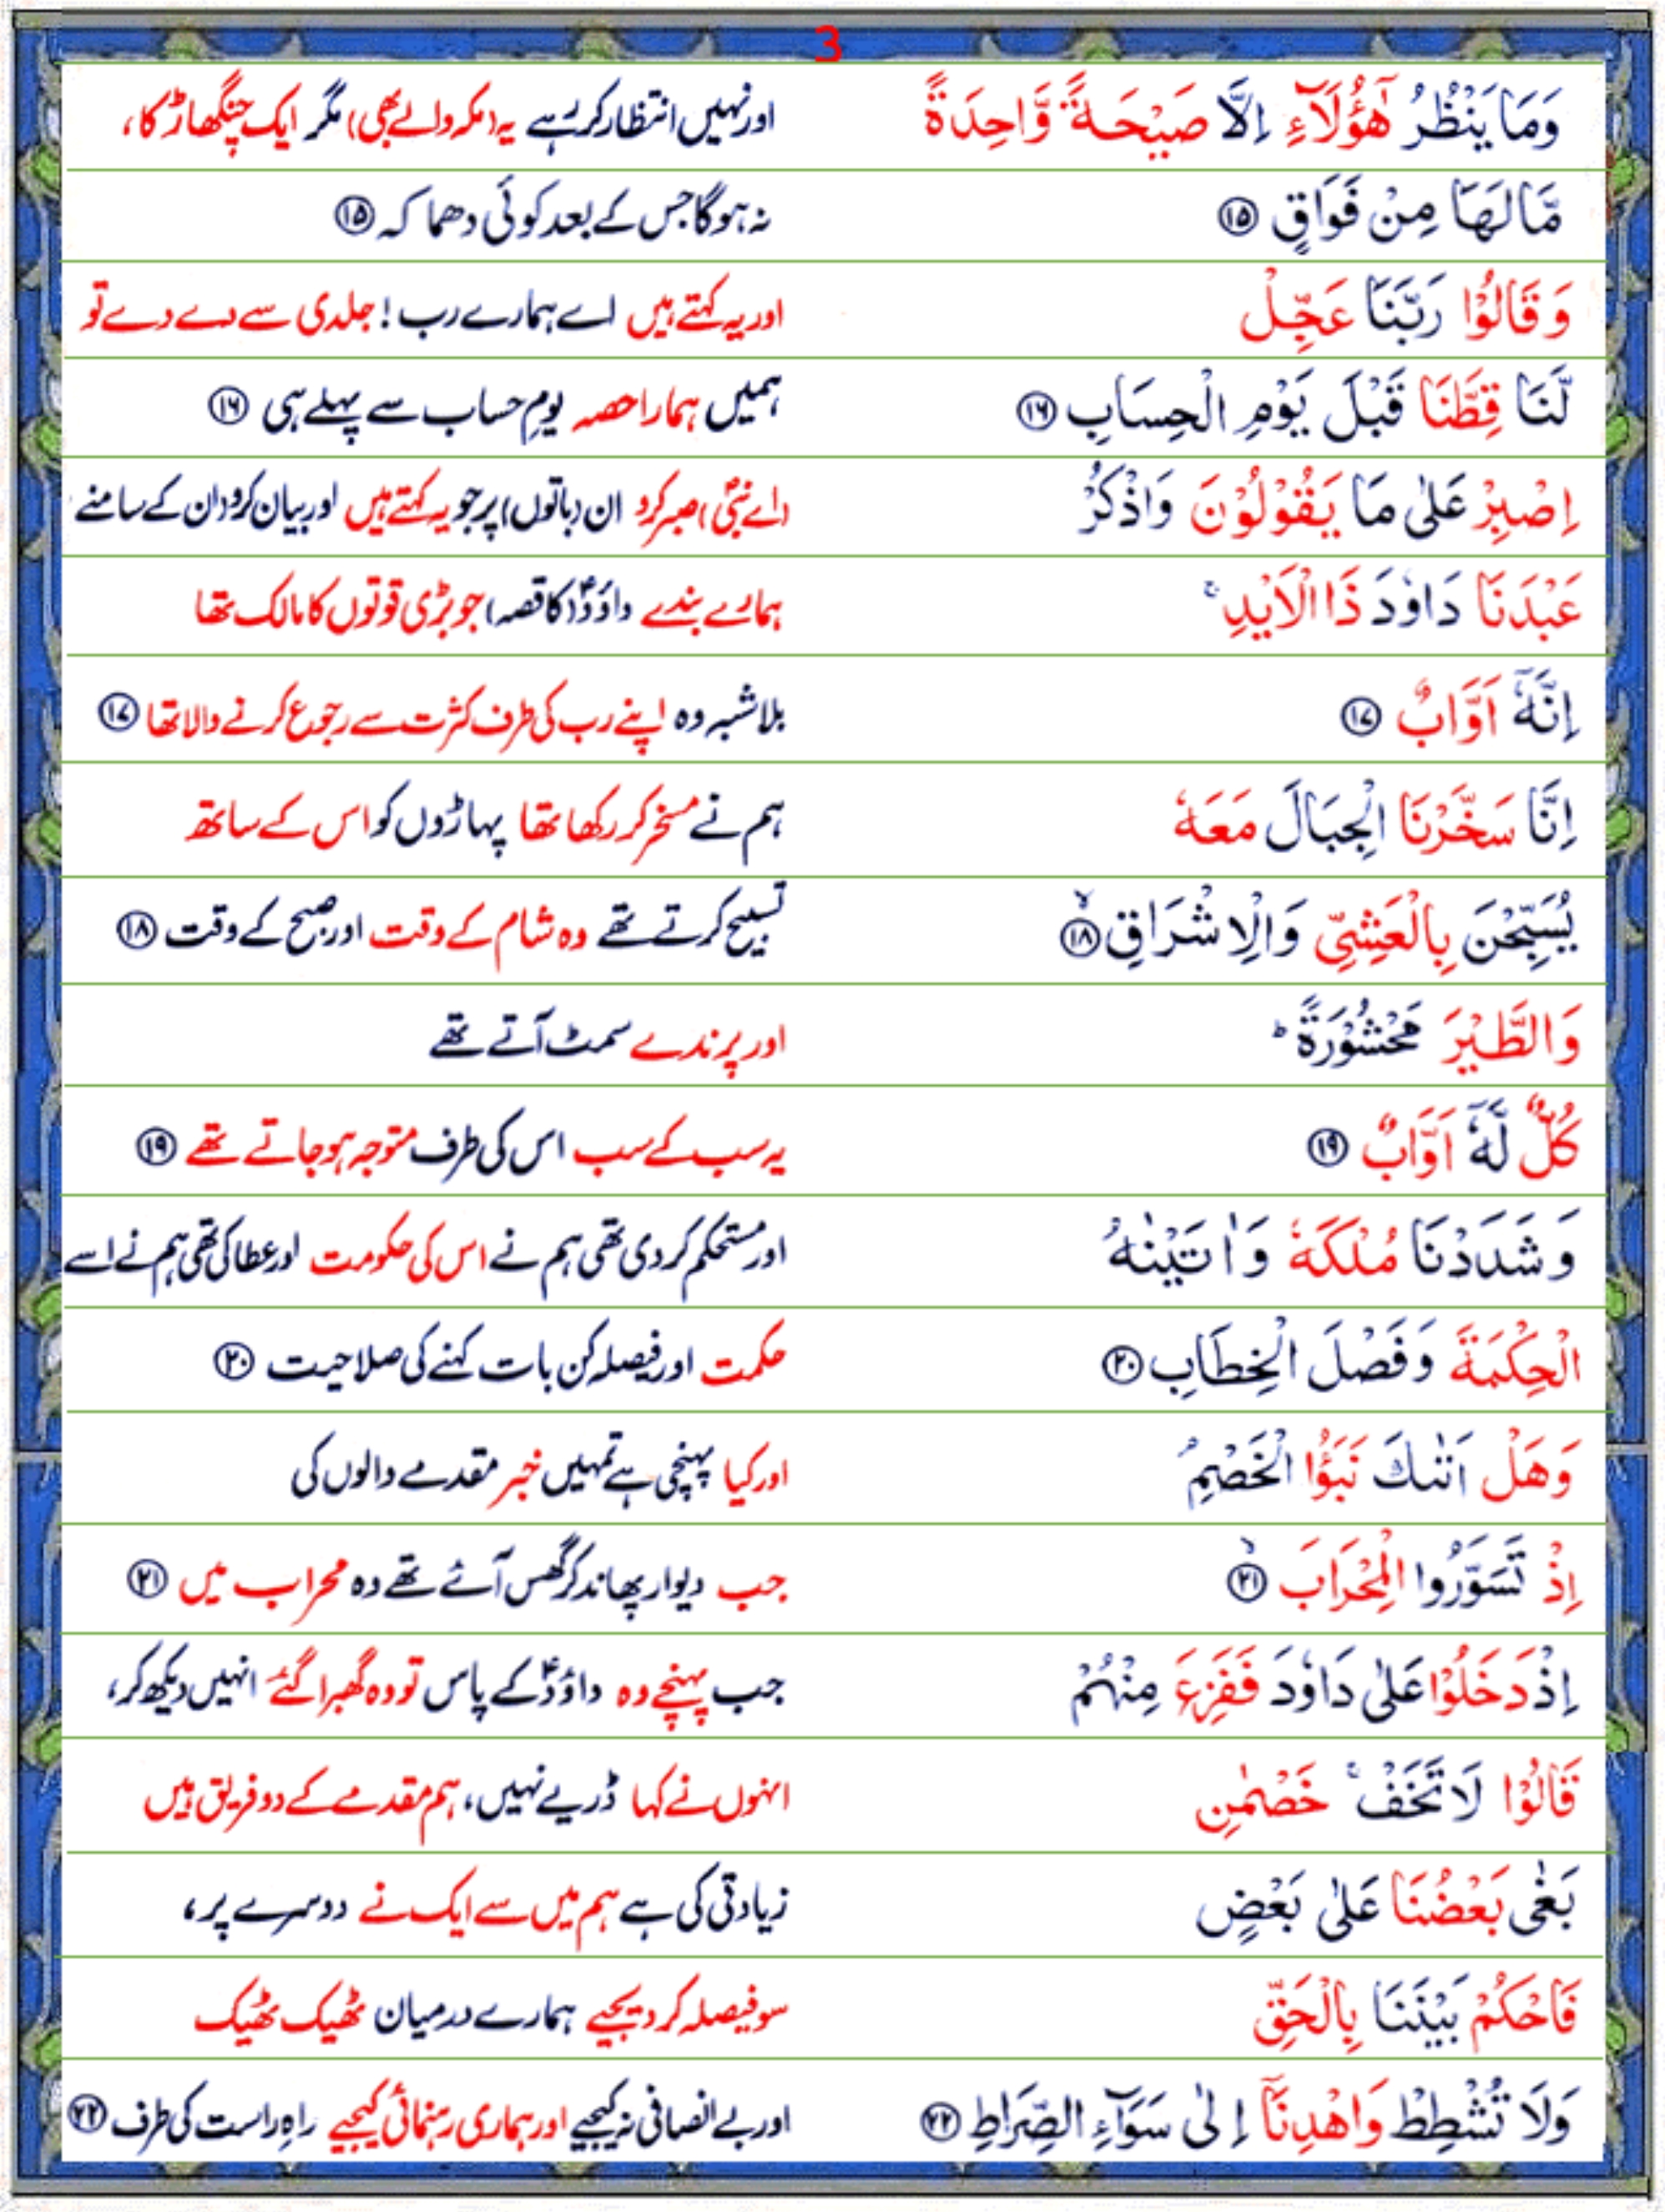 3
وَمَا يَنْظُرُ هٰٓؤُلَآءِ اِلَّا صَيْحَةً وَّاحِدَةً اور نہیں انتظار کر رہے یہ (مکہ والے بھی) مگر ایک چنگھاڑ کا،
مَّا لَهَا مِنْ فَوَاقٍ ⑮ نہ ہوگا جس کے بعد کوئی دھماکہ ⑮
وَقَالُوْا رَبَّنَا عَجِّلْ اور یہ کہتے ہیں اے ہمارے رب! جلدی سے دے دے تو
لَّنَا قِطَّنَا قَبْلَ يَوْمِ الْحِسَابِ ⑯ ہمیں ہمارا حصہ یومِ حساب سے پہلے ہی ⑯
اِصْبِرْ عَلٰى مَا يَقُوْلُوْنَ وَاذْكُرْ (اے نبیؐ) صبر کرو ان (باتوں) پر جو یہ کہتے ہیں اور بیان کرو ان کے سامنے
عَبْدَنَا دَاوٗدَ ذَا الْاَيْدِ ۚ ہمارے بندے داؤدؑ (کا قصہ) جو بڑی قوتوں کا مالک تھا
اِنَّهٗٓ اَوَّابٌ ⑰ بلاشبہ وہ اپنے رب کی طرف کثرت سے رجوع کرنے والا تھا ⑰
اِنَّا سَخَّرْنَا الْجِبَالَ مَعَهٗ ہم نے مسخر کر رکھا تھا پہاڑوں کو اس کے ساتھ
يُسَبِّحْنَ بِالْعَشِيِّ وَالْاِشْرَاقِ ۙ⑱ تسبیح کرتے تھے وہ شام کے وقت اور صبح کے وقت ⑱
وَالطَّيْرَ مَحْشُوْرَةً ؕ اور پرندے سمٹ آتے تھے
كُلٌّ لَّهٗٓ اَوَّابٌ ⑲ یہ سب کے سب اس کی طرف متوجہ ہو جاتے تھے ⑲
وَشَدَدْنَا مُلْكَهٗ وَاٰتَيْنٰهُ اور مستحکم کر دی تھی ہم نے اس کی حکومت اور عطا کی تھی ہم نے اسے
الْحِكْمَةَ وَفَصْلَ الْخِطَابِ ⑳ حکمت اور فیصلہ کن بات کہنے کی صلاحیت ⑳
وَهَلْ اَتٰىكَ نَبَؤُا الْخَصْمِ ۘ اور کیا پہنچی ہے تمہیں خبر مقدمے والوں کی
اِذْ تَسَوَّرُوا الْمِحْرَابَ ۙ㉑ جب دیوار پھاند کر گھس آئے تھے وہ محراب میں ㉑
اِذْ دَخَلُوْا عَلٰى دَاوٗدَ فَفَزِعَ مِنْهُمْ جب پہنچے وہ داؤدؑ کے پاس تو وہ گھبرا گئے انہیں دیکھ کر،
قَالُوْا لَا تَخَفْ ۚ خَصْمٰنِ انہوں نے کہا ڈریے نہیں، ہم مقدمے کے دو فریق ہیں
بَغٰى بَعْضُنَا عَلٰى بَعْضٍ زیادتی کی ہے ہم میں سے ایک نے دوسرے پر،
فَاحْكُمْ بَيْنَنَا بِالْحَقِّ سو فیصلہ کر دیجیے ہمارے درمیان ٹھیک ٹھیک
وَلَا تُشْطِطْ وَاهْدِنَآ اِلٰى سَوَآءِ الصِّرَاطِ ㉒ اور بے انصافی نہ کیجیے اور ہماری رہنمائی کیجیے راہِ راست کی طرف ㉒